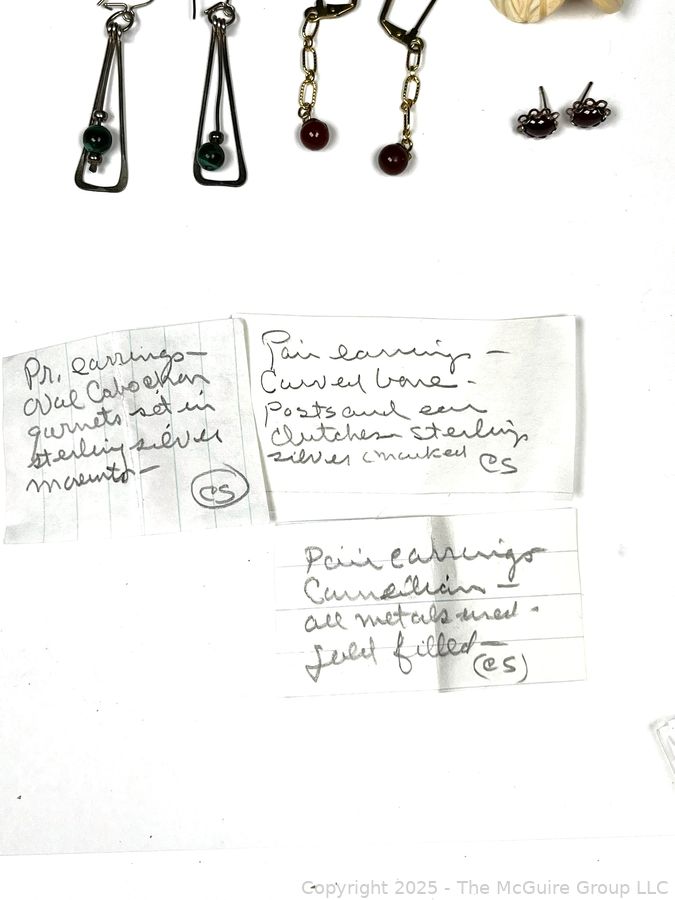 Pr. earrings—
oval Cabochon
garnets set in
sterling silver
mounts—
CS
Pair earrings —
Carved bone -
Posts and ear
clutches sterling
silver (marked CS
Pair earrings
Carnelian —
all metals used -
gold filled—
(CS)
Copyright 2025 - The McGuire Group LLC